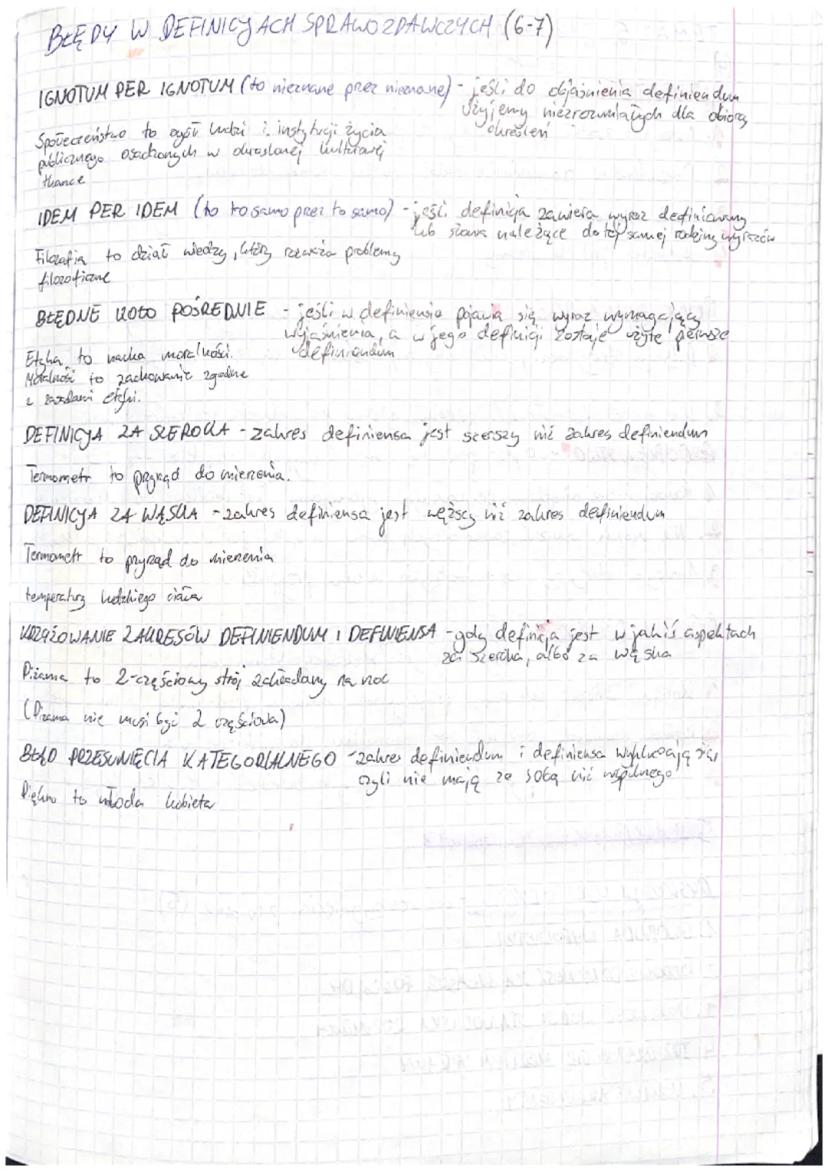 BŁĘDY W DEFINICJACH SPRAWOZDAWCZYCH (6-7)
IGNOTUM PER IGNOTUM (to nieznane przez nieznane) - jeśli do objaśnienia definiendum
użyjemy niezrozumiałych dla odbiorcy
określeń
Społeczeństwo to ludzi i instytucji życia
publicznego osadzonych w określonej kulturowej
tkance
IDEM PER IDEM (to to samo przez to samo) - jeśli definicja zawiera wyraz definiowany
lub słowa należące do tej samej rodziny wyrazów
Filozofia to dział wiedzy, który rozważa problemy
filozoficzne
BŁĘDNE KOŁO POŚREDNIE - jeśli w definiensie pojawia się wyraz wymagający
wyjaśnienia, a w jego definicji zostaje użyte pierwsze
definiendum
Etyka to nauka moralności.
Moralność to zachowanie zgodne
z zasadami etyki.
DEFINICJA ZA SZEROKA - zakres definiensa jest szerszy niż zakres definiendum
Termometr to przyrząd do mierzenia.
DEFINICJA ZA WĄSKA - zakres definiensa jest węższy niż zakres definiendum
Termometr to przyrząd do mierzenia
temperatury ludzkiego ciała
KRZYŻOWANIE ZAKRESÓW DEFINIENDUM I DEFINIENSA - gdy definicja jest w jakiś aspektach
za szeroka, albo za wąska
Piżama to 2-częściowy strój zakładany na noc
(Piżama nie musi być 2 częściowa)
BŁĄD PRZESUNIĘCIA KATEGORIALNEGO - zakres definiendum i definiensa wykluczają się,
czyli nie mają ze sobą nic wspólnego
Piękno to młoda kobieta